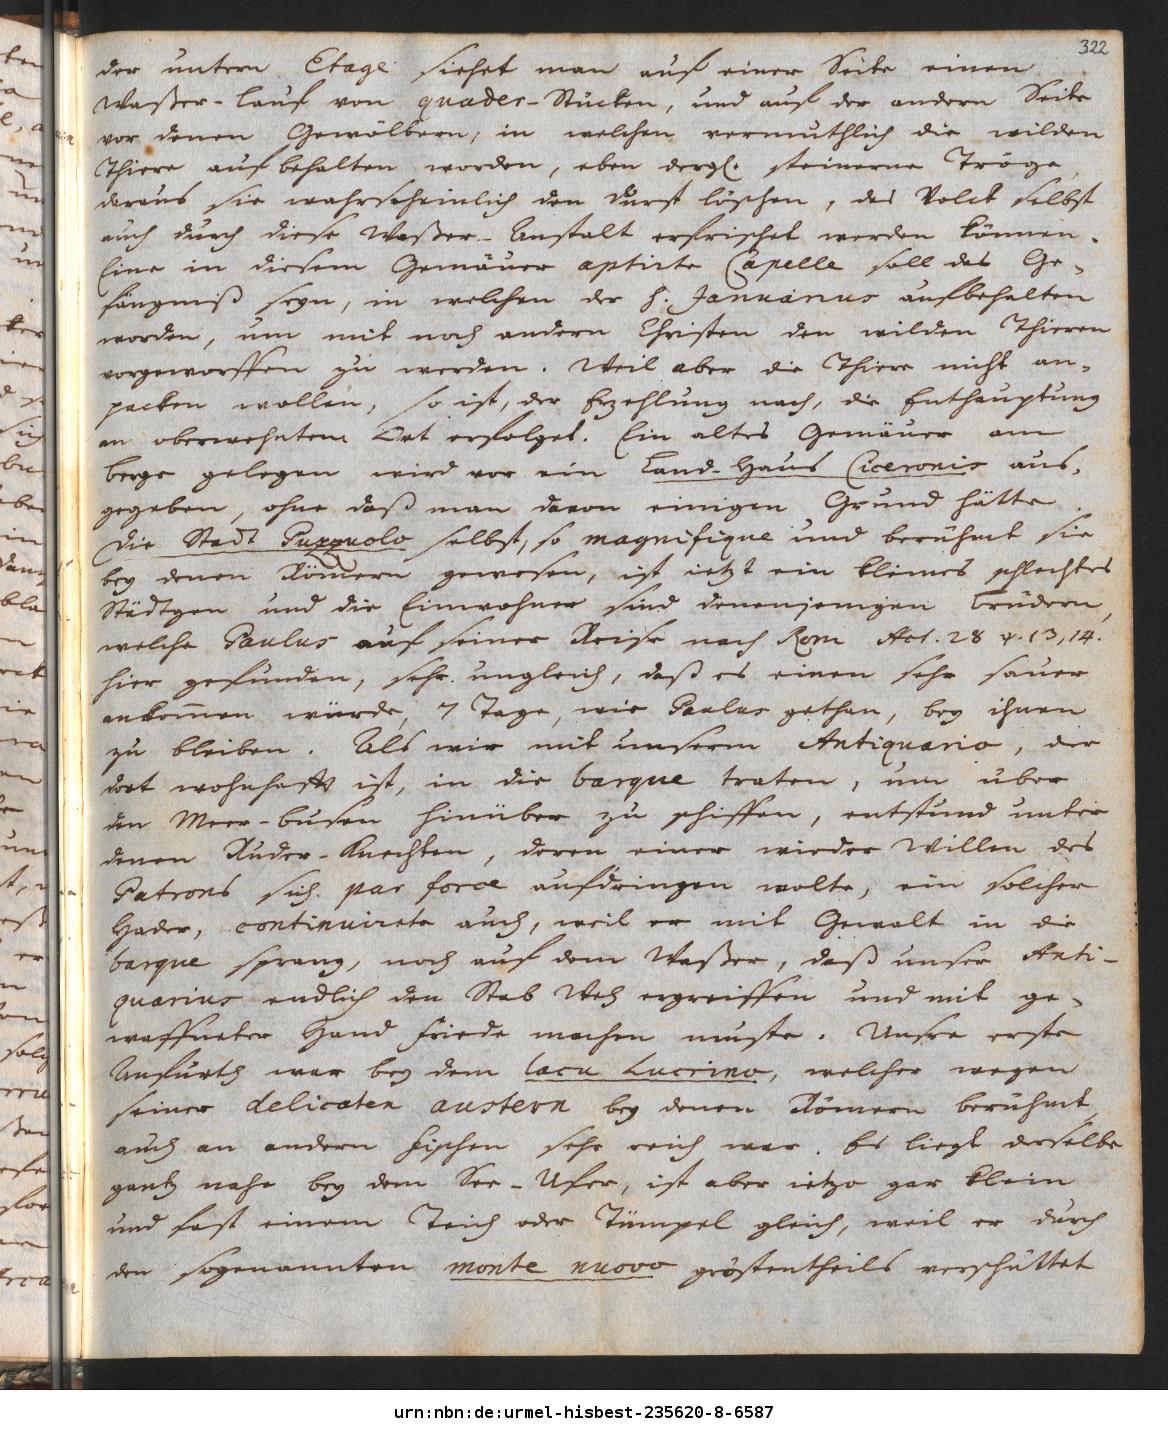 322
der untern Etage siehet man auf einer Seite einen
Waßer-Lauf von quader-Stücken, und auf der andern Seite
vor denen Gewölbern, in welchen vermuthlich die wilden
Thiere aufbehalten worden, eben dergl. steinerne Tröge,
daraus sie wahrscheinlich den Durst löschen, das Volck selbst
auch durch diese Waßer-Anstalt erfrischet werden können.
Eine in diesem Gemäuer aptirte Capelle soll das Ge-
fängniß seyn, in welchen der h. Januarius aufbehalten
worden, um mit noch andern Christen den wilden Thieren
vorgeworffen zu werden. Weil aber die Thiere nicht an-
packen wollen, so ist, der Erzehlung nach, die Enthauptung
an oberwehntem Ort erfolget. Ein altes Gemäuer am
berge gelegen wird vor ein Land-Haus Ciceronis aus-
gegeben, ohne daß man davon einigen Grund hätte.
Die Stadt Puzzuolo selbst, so magnifique und berühmt sie
bey denen Römern gewesen, ist ietzt ein kleines schlechtes
Städtgen und die Einwohner sind denenjenigen brüdern,
welche Paulus auf seiner Reise nach Rom Act. 28 v. 13, 14.
hier gefunden, sehr ungleich, daß es einen sehr sauer
ankom̅en würde, 7 Tage, wie Paulus gethan, bey ihnen
zu bleiben. Als wir mit unserm Antiquario, der
dort wohnhafft ist, in die barque traten, um über
den Meer-busen hinüber zu schiffen, entstund unter
denen Ruder-Knechten, deren einer wieder Willen des
Patrons sich par force aufdringen wolte, ein solcher
Hader, continuirete auch, weil er mit Gewalt in die
barque sprang, noch auf dem Waßer, daß unser Anti-
quarius endlich den Stab Weh ergreiffen und mit ge-
waffneter Hand Friede machen muste. Unsre erste
Anfurth war bey dem lacu Lucrino, welcher wegen
seiner delicaten austern bey denen Römern berühmt,
auch an andern Fischen sehr reich war. Es liegt derselbe
gantz nahe bey dem See-Ufer, ist aber ietzo gar klein
und fast einem Teich oder Tümpel gleich, weil er durch
den sogenannten monte nuovo gröstentheils verschüttet
urn:nbn:de:urmel-hisbest-235620-8-6587